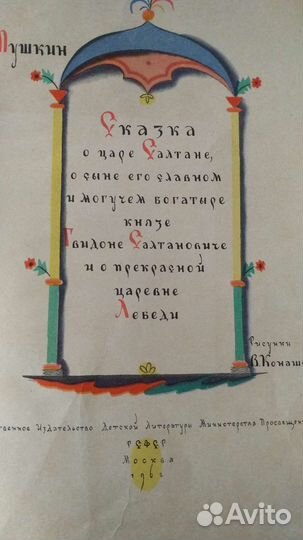 Пушкин
Сказка
о царе Салтане,
о сыне его славном
и могучем богатыре
князе
Гвидоне Салтановиче
и о прекрасной
царевне
Лебеди
Рисунки
В. Конаше
твенное Издательство Детской Литературы Министерства Просвещен
РСФСР
Москва
1962
Avito